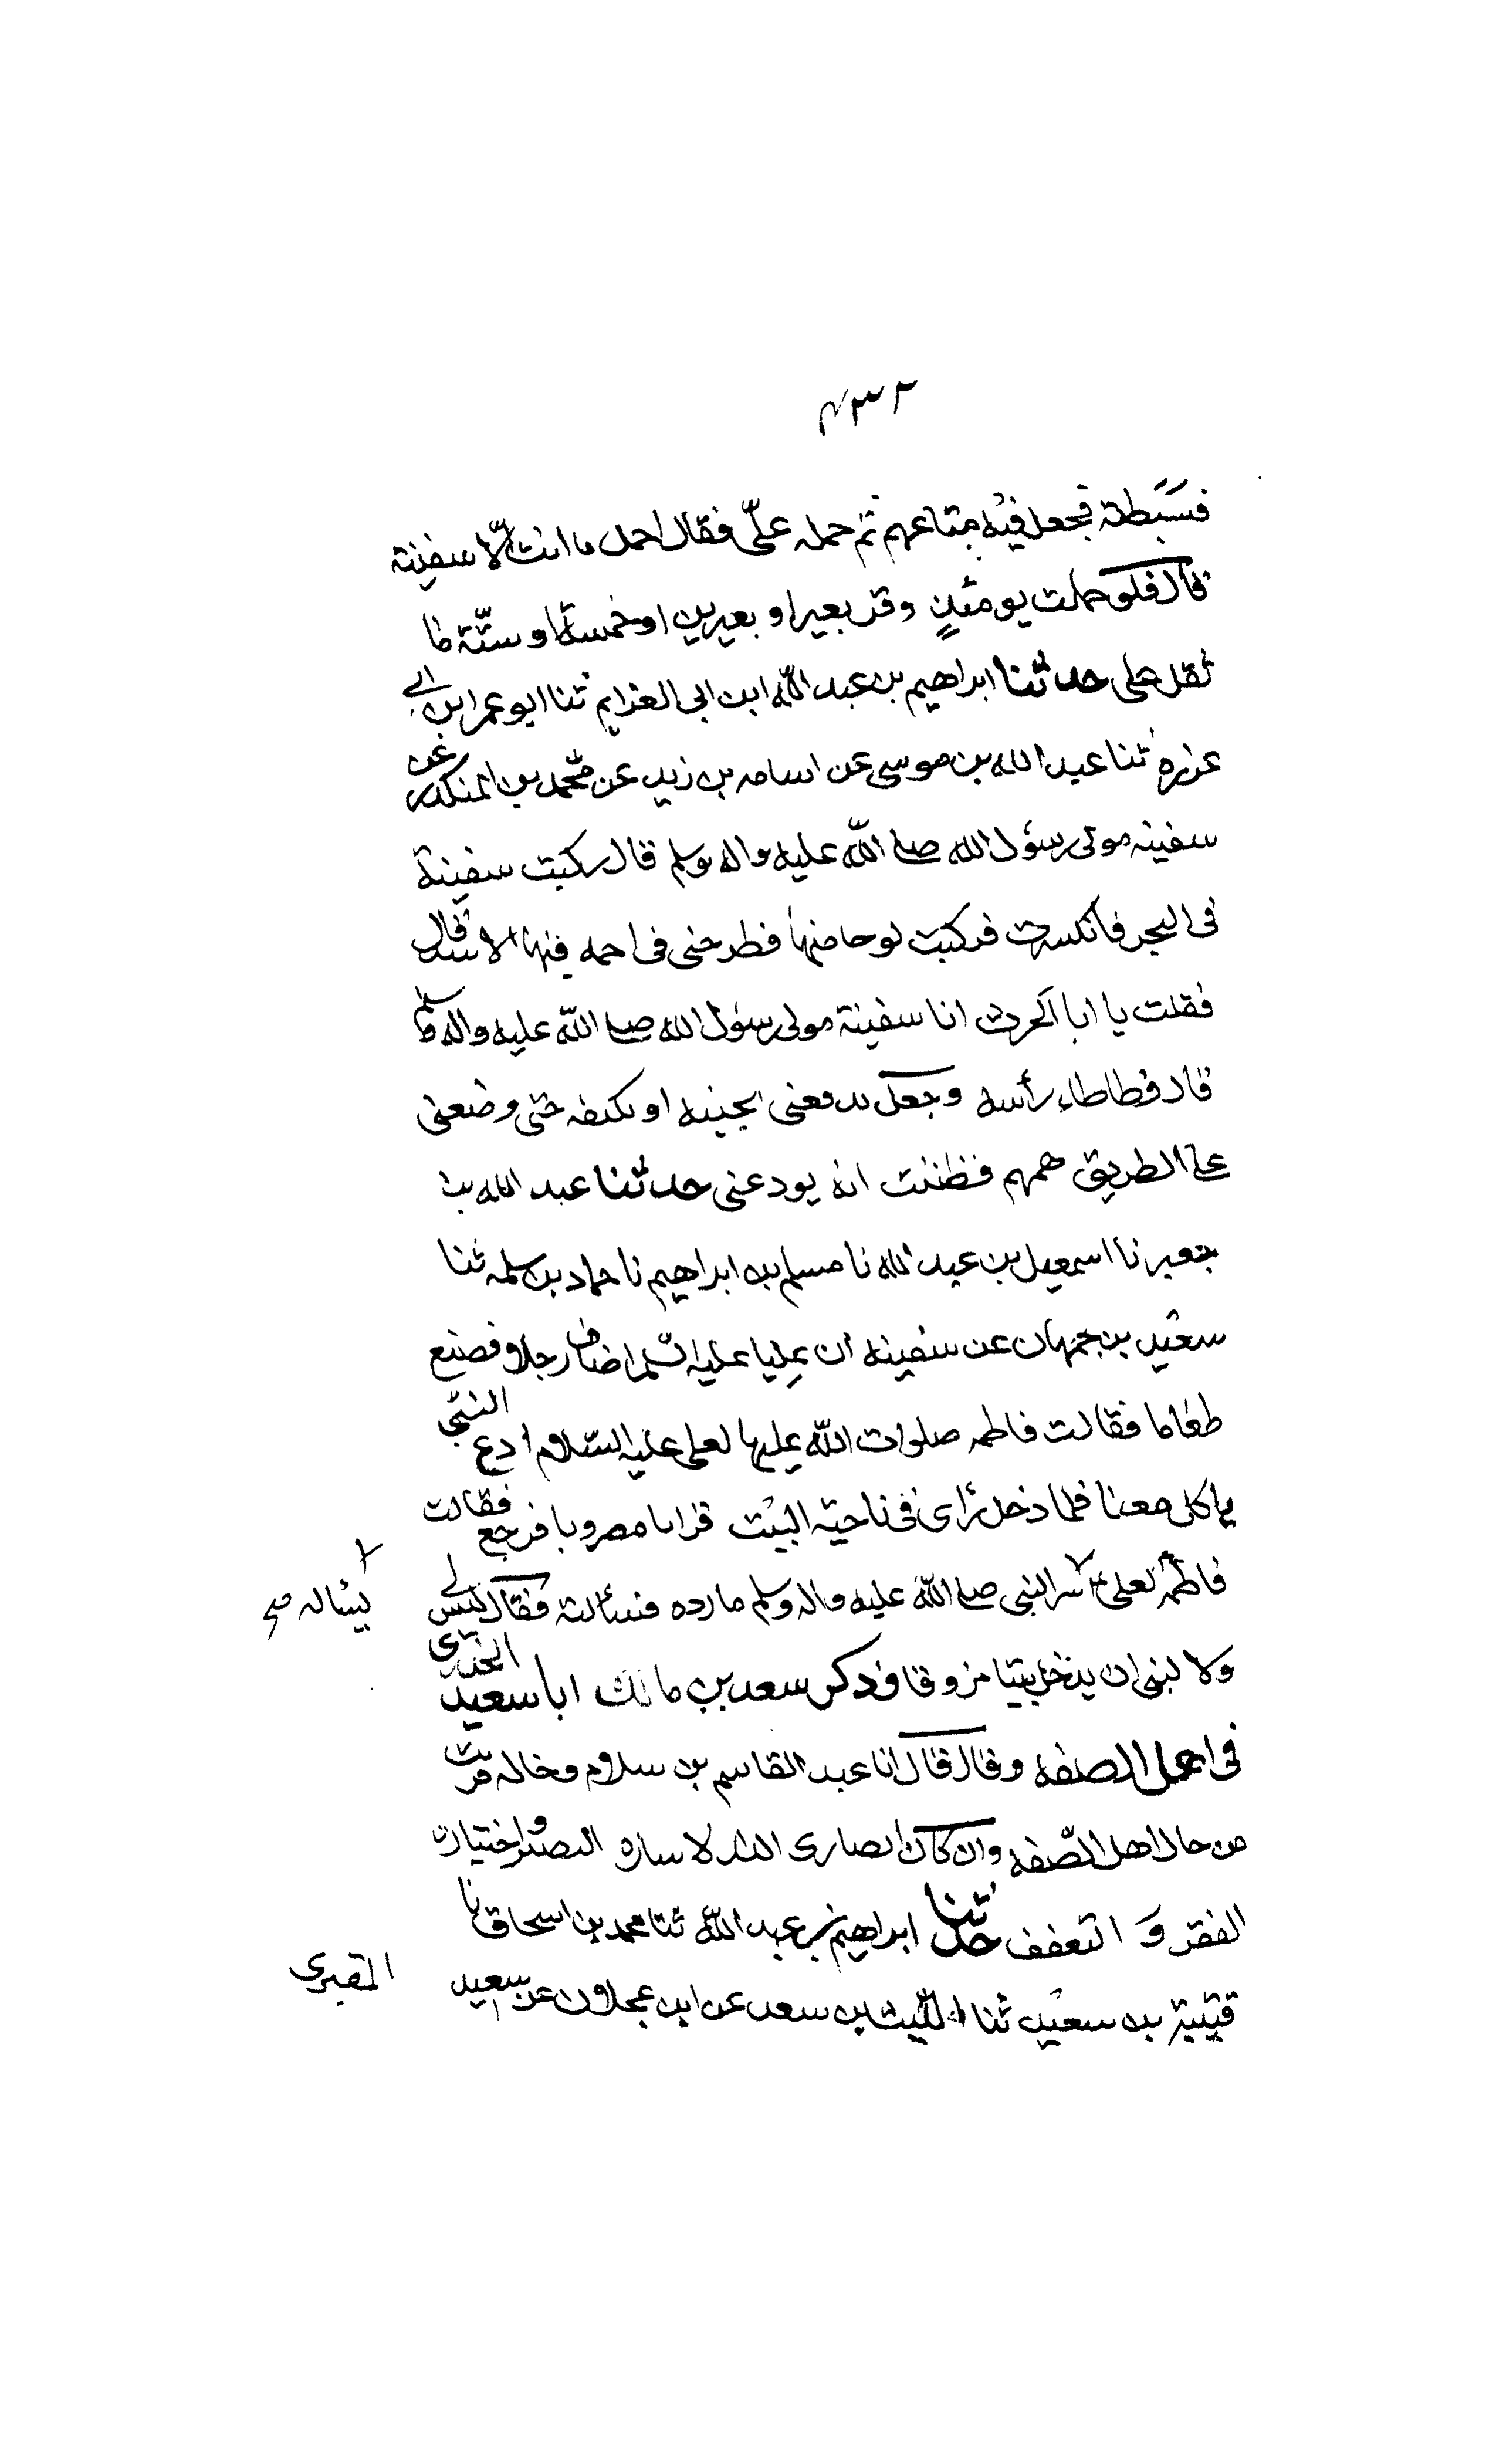 ٤٣٢
فبسّطته فجعل فيه متاعهم ثم حمله علىّ فقال احمل ما انت الّا سفينة
قال فلو حملت يومئذٍ وقر بعير او بعيرين او خمسة او ستّة ما
ثقل على حدثنا ابراهيم بن عبد الله ابن ابى العزايم ثنا ابو عمر ابن ابي
غرزه ثنا عبيد الله بن موسى عن اسامه بن زيد عن محمد بن المنكدر عن
سفينه مولى رسول الله صلى الله عليه واله وسلم قال ركبت سفينة
فى البحر فانكسرت فركبت لوحا منها فطرحنى فى اجمه فيها الاسد قال
فقلت يا ابا الحرث انا سفينة مولى رسول الله صلى الله عليه واله وسلم
قال فطاطاء رأسه وجعل يدفعنى بجنبه او بكتفه حتى وضعنى
على الطريق همهم فظننت انه يودعنى حدثنا عبد الله بن
جعفر نا اسمعيل بن عبد الله نا مسلم بن ابراهيم نا حماد بن سلمه ثنا
سعيد بن جمهان عن سفينه ان عليا عليه السلم اضاف رجلا فصنع
طعاما فقالت فاطمه صلوات الله عليها لعلى عليه السّلام ادع النبى
ياكل معنا فلما دخل رأى فى ناحية البيت قراما مضروبا فرجع فقالت
فاطمة لعلى النبى صلى الله عليه واله وسلم مارده فسألته فقال ليس لى
لا يسٔاله صح
ولا لنبى ان يدخل بيتا مزوقا وذكر سعد بن مالك ابا سعيد الخدرى
فى اهل الصفه وقال قال انا عبد القاسم بن سلام وحاله قريب
من حال اهل الصّفه وان كان انصارى الدار لايثاره التصبر واختياره
الفقر و التعفف حدثنا ابراهيم بن عبد الله ثنا محمد بن اسحاق نا
قتيبة بن سعيد ثنا الليث بن سعد عن ابن عجلان عن سعيد المقبرى